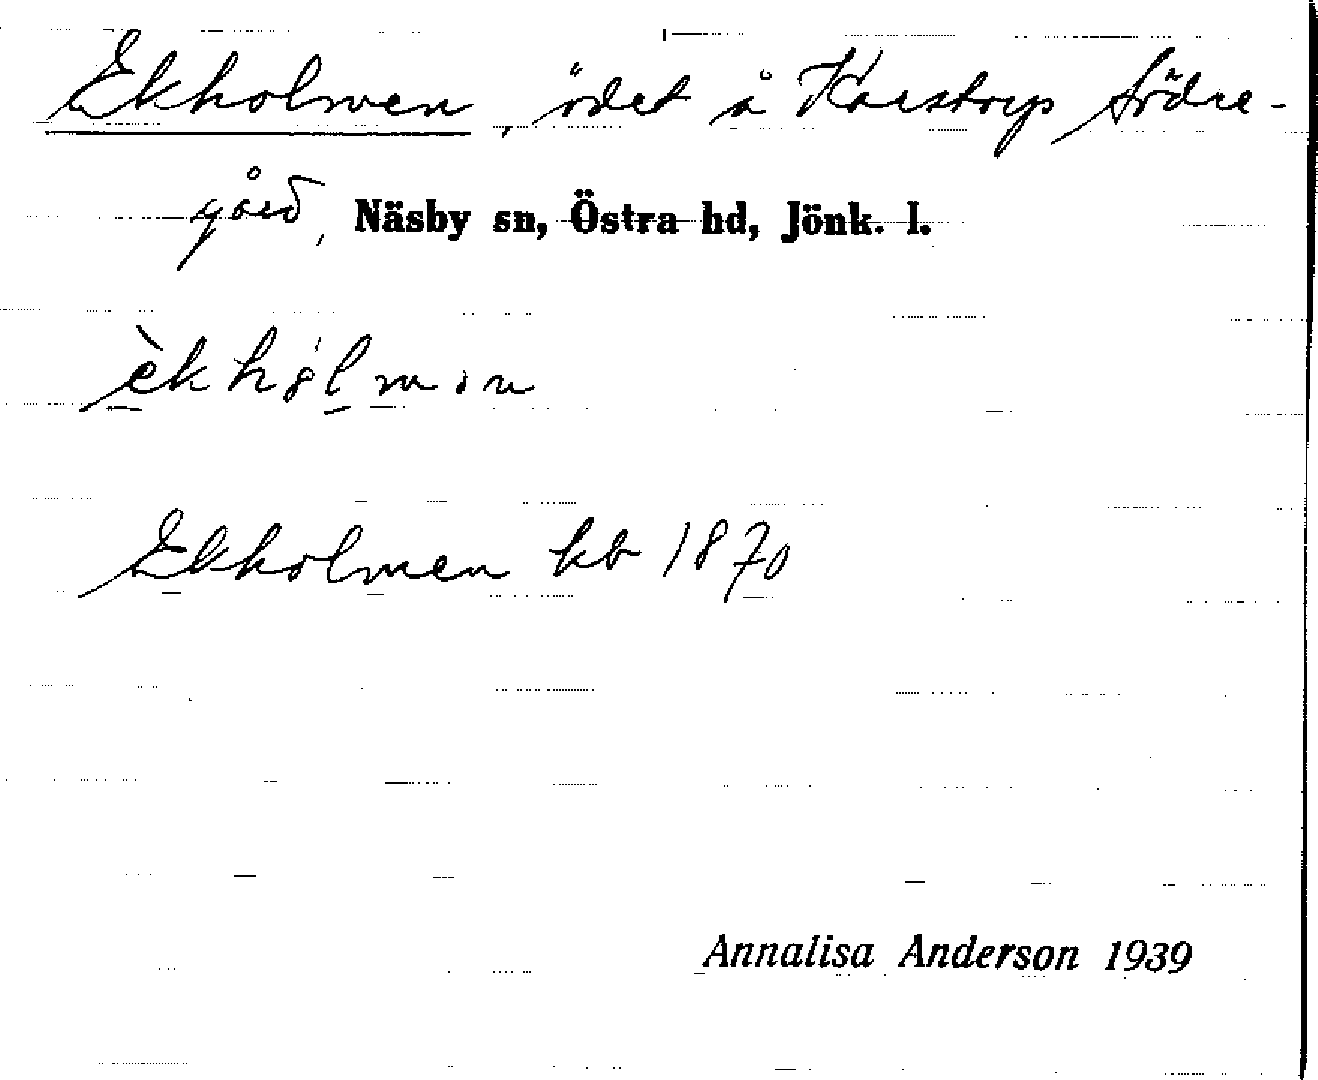 Ekholmen, ödet å Karstorp Södre-
gård, Näsby sn, Östra hd, Jönk. l.
Ekholmen kb 1870
Annalisa Anderson 1939